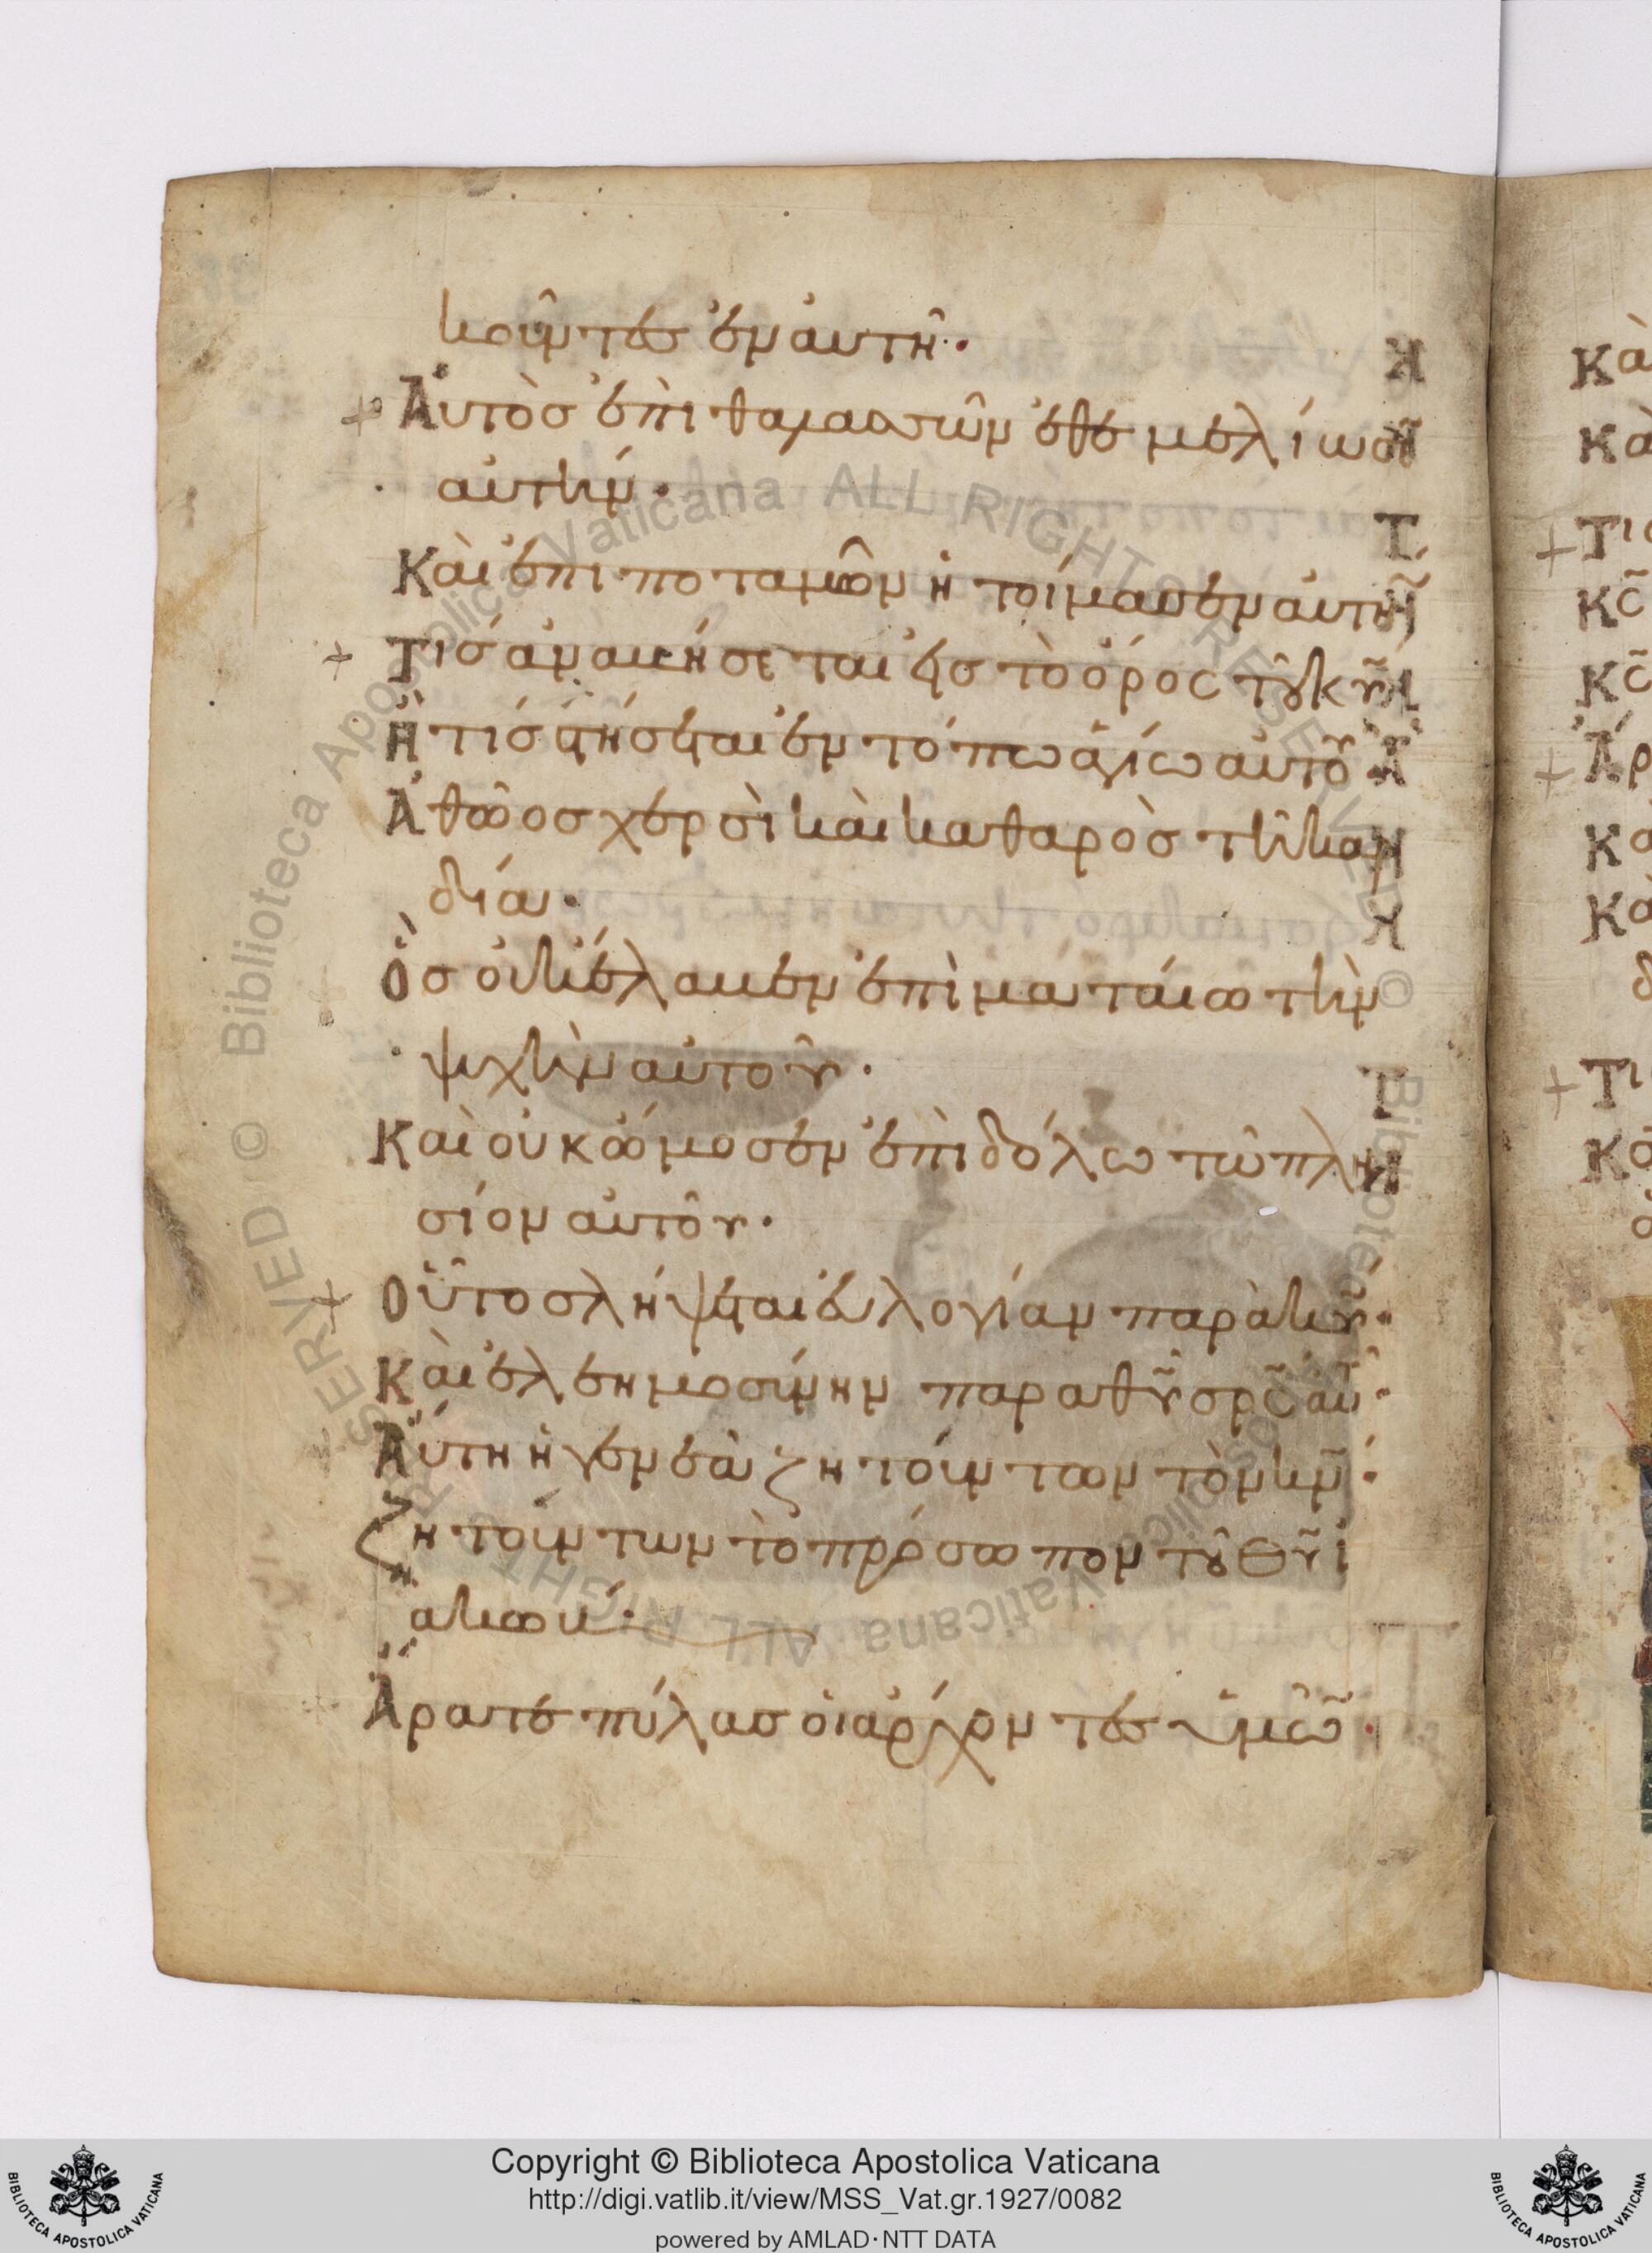 κοῦντες ἐν αὐτῇ·
Αὐτὸς ἐπὶ θαλασσῶν ἐθεμελίωσεν
αὐτήν·
Καὶ ἐπὶ ποταμῶν ἡτοίμασεν αὐτήν
Τίς ἀναβήσεται εἰς τὸ ὄρος τοῦ κυ̅
Ἢ τίς στήσεται ἐν τόπω ἁγίω αὐτοῦ
Ἀθῶος χερσὶ καὶ καθαρὸς τῆ καρ
δία·
Ὃς οὐκ ἔλαβεν ἐπὶ ματαίω τὴν
ψυχὴν αὐτοῦ·
Καὶ οὐκ ὤμοσεν ἐπὶ δόλω τῶ πλη
σίον αὐτοῦ·
Οὗτος λήψεται εὐλογίαν παρὰ κυ̅·
Καὶ ἐλεημοσύνην παρὰ θυ̅ σρ̅ς αὐτ·
Αὕτη ἡ γενεὰ ζητούντων τὸν κν̅·
Ζητούντων τὸ πρόσωπον τοῦ θυ̅ ἰ
ακώβ·
Ἄρατε πύλας οἱ ἄρχοντες ὑμῶ̅·
Κὰ
Κὰ
Τις
Κς̅
Κς̅
Ἄρ
Κα
Κὰ
Τι
Κα
Copyright © Biblioteca Apostolica Vaticana
http://digi.vatlib.it/view/MSS_Vat.gr.1927/0082
powered by AMLAD·NTT DATA
BIBLIOTECA APOSTOLICA VATICANA
BIBLIOTECA APOSTOLICA VATICANA